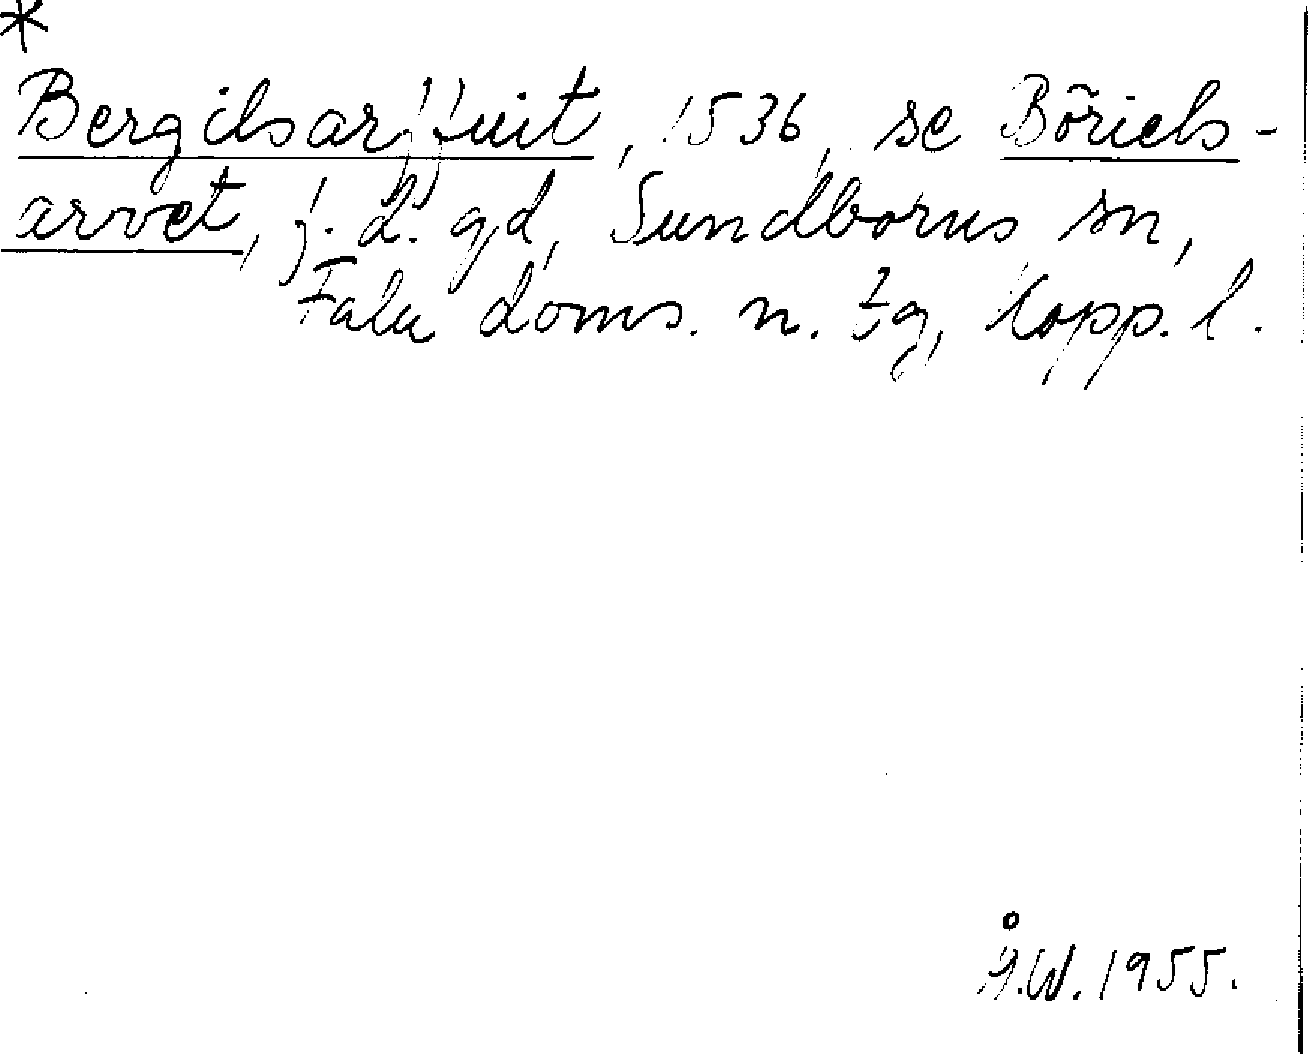 *
Bergilsarffuit, 1536, se Böriels-
arvet, j. d. gd, Sundborns sn,
Falu doms. n. tg, Kopp. l.
Å.W. 1955.